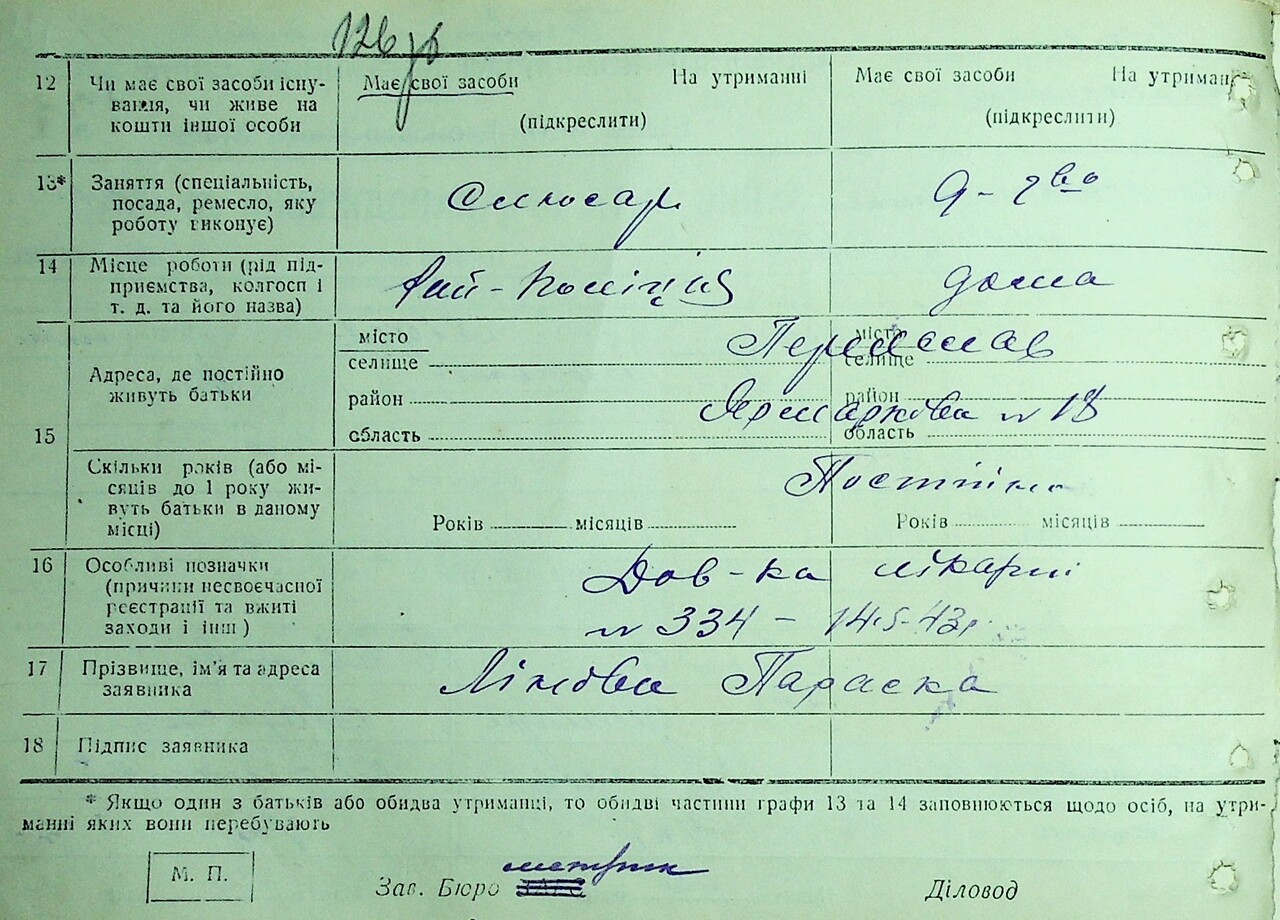 126
12 Чи має свої засоби існу- Має свої засоби На утриманні Має свої засоби На утриманні
вання, чи живе на
кошти іншої особи (підкреслити) (підкреслити)
13* Заняття (спеціальність,
посада, ремесло, яку Слюсар д-гво
роботу виконує)
14 Місце роботи (рід під-
приємства, колгосп і Рай-Поліція дома
т. д. та його назва)
місто місто Переяслав
селище селище
Адреса, де постійно
живуть батьки район район Ярмаркова № 18
15 область область
Скільки років (або мі-
сяців до 1 року жи- Постійно
вуть батьки в даному
місці) Років місяців Років місяців
16 Особливі позначки Дов-ка лікарні
(причини несвоєчасної
реєстрації та вжиті № 334 – 14.5-43р.
заходи і інш)
17 Прізвище, ім'я та адреса Параска
заявника
18 Підпис заявника
* Якщо один з батьків або обидва утриманці, то обидві частини графи 13 та 14 заповнюються щодо осіб, на утри-
манні яких вони перебувають
М. П. Зав. Бюро ЗАГС метрик Діловод